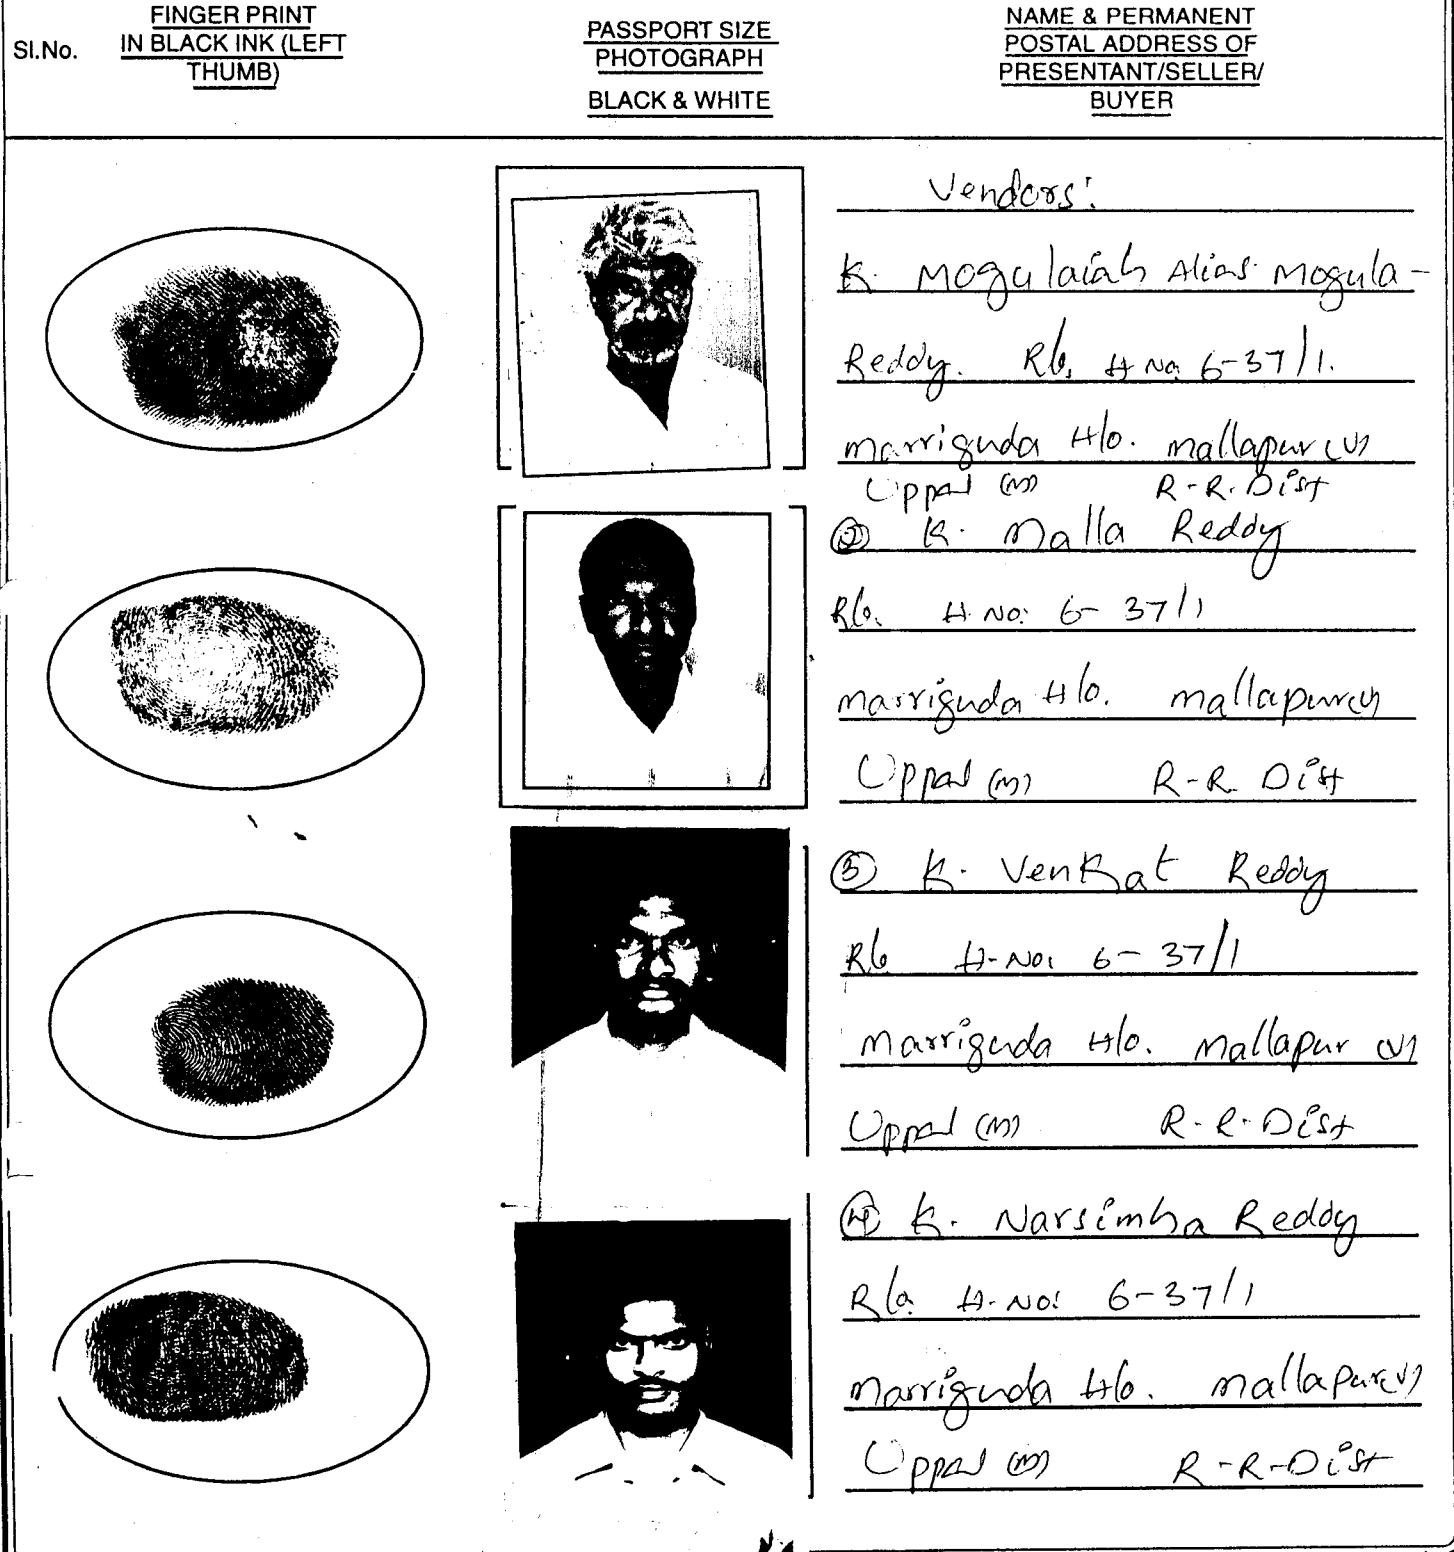 Sl.No.
FINGER PRINT
IN BLACK INK (LEFT
THUMB)
PASSPORT SIZE
PHOTOGRAPH
BLACK & WHITE
NAME & PERMANENT
POSTAL ADDRESS OF
PRESENTANT/SELLER/
BUYER
Vendors:
K. Mogulaiah Alias Mogula-
Reddy. R/o. H No. 6-37/1.
Marriguda H/o. Mallapur (V)
Uppal (M) R-R. Dist
② K. Malla Reddy
R/o. H. No: 6-37/1
Marriguda H/o. Mallapur (V)
Uppal (M) R-R. Dist
③ K. Venkat Reddy
R/o H-No: 6-37/1
Marriguda H/o. Mallapur (V)
Uppal (M) R-R-Dist
④ K. Narsimha Reddy
R/o. H-No: 6-37/1
Marriguda H/o. Mallapur (V)
Uppal (M) R-R-Dist